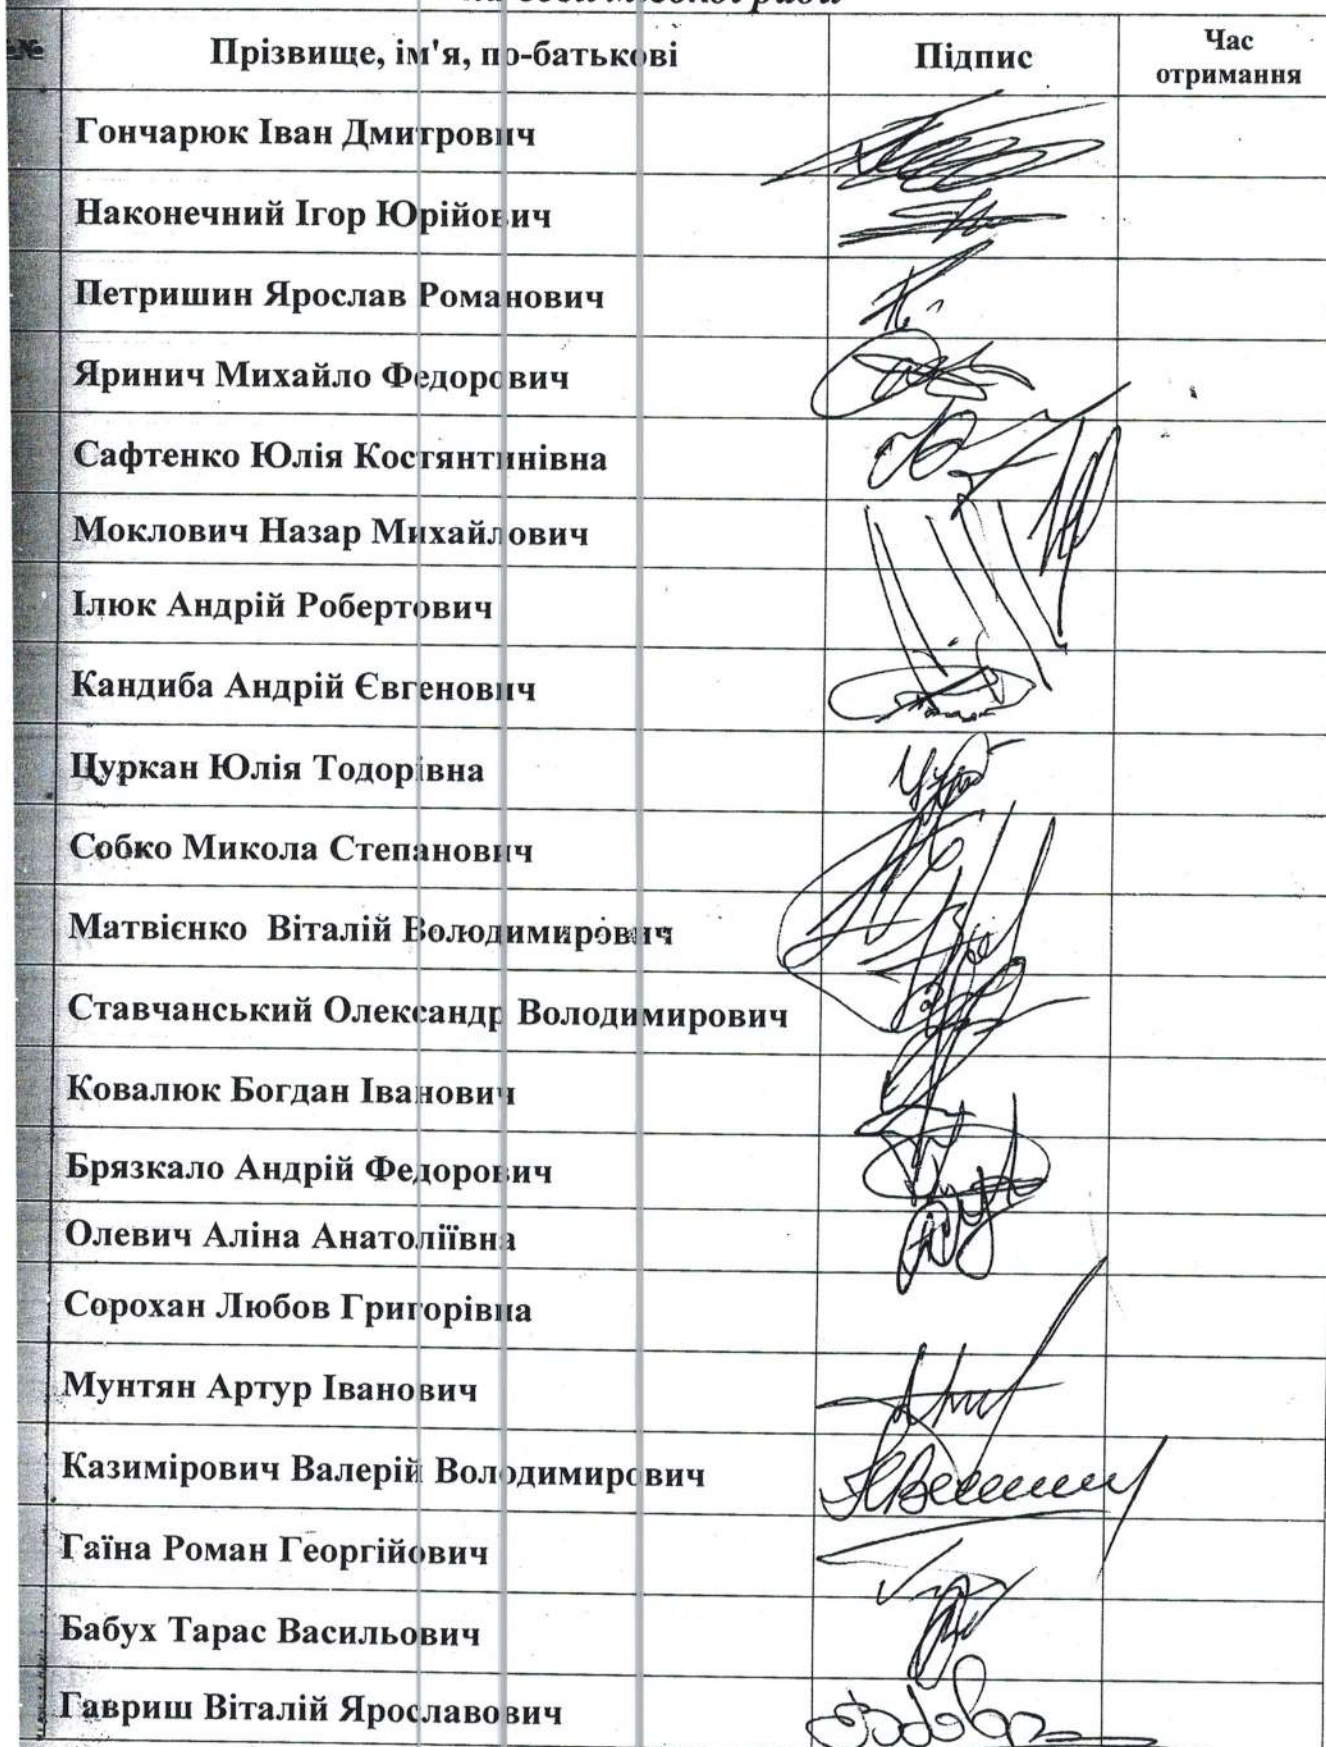 № Прізвище, ім'я, по-батькові Підпис Час отримання
Гончарюк Іван Дмитрович
Наконечний Ігор Юрійович
Петришин Ярослав Романович
Яринич Михайло Федорович
Сафтенко Юлія Костянтинівна
Моклович Назар Михайлович
Ілюк Андрій Робертович
Кандиба Андрій Євгенович
Цуркан Юлія Тодорівна
Собко Микола Степанович
Матвієнко Віталій Володимирович
Ставчанський Олександр Володимирович
Ковалюк Богдан Іванович
Брязкало Андрій Федорович
Олевич Аліна Анатоліївна
Сорохан Любов Григорівна
Мунтян Артур Іванович
Казимірович Валерій Володимирович
Гаїна Роман Георгійович
Бабух Тарас Васильович
Гавриш Віталій Ярославович